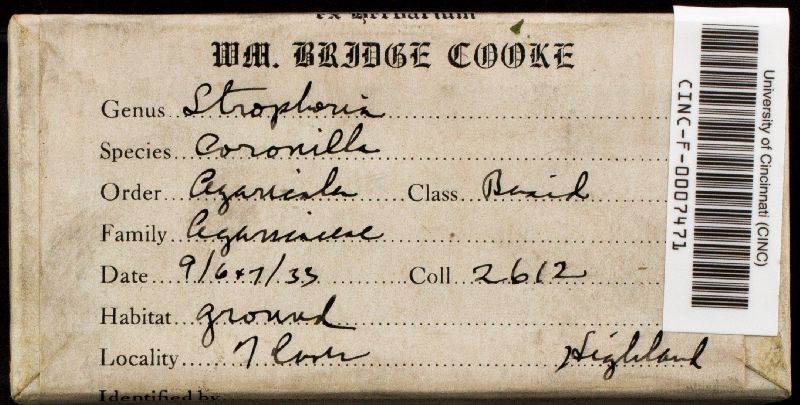 ex Herbarium
WM. BRIDGE COOKE
Genus Stropharia
Species Coronilla
Order Agaricales Class Basid
Family Agaricaceae
Date 9/6+7/33 Coll 2612
Habitat ground
Locality Highland
Identified by
University of Cincinnati (CINC)
CINC-F-0007471